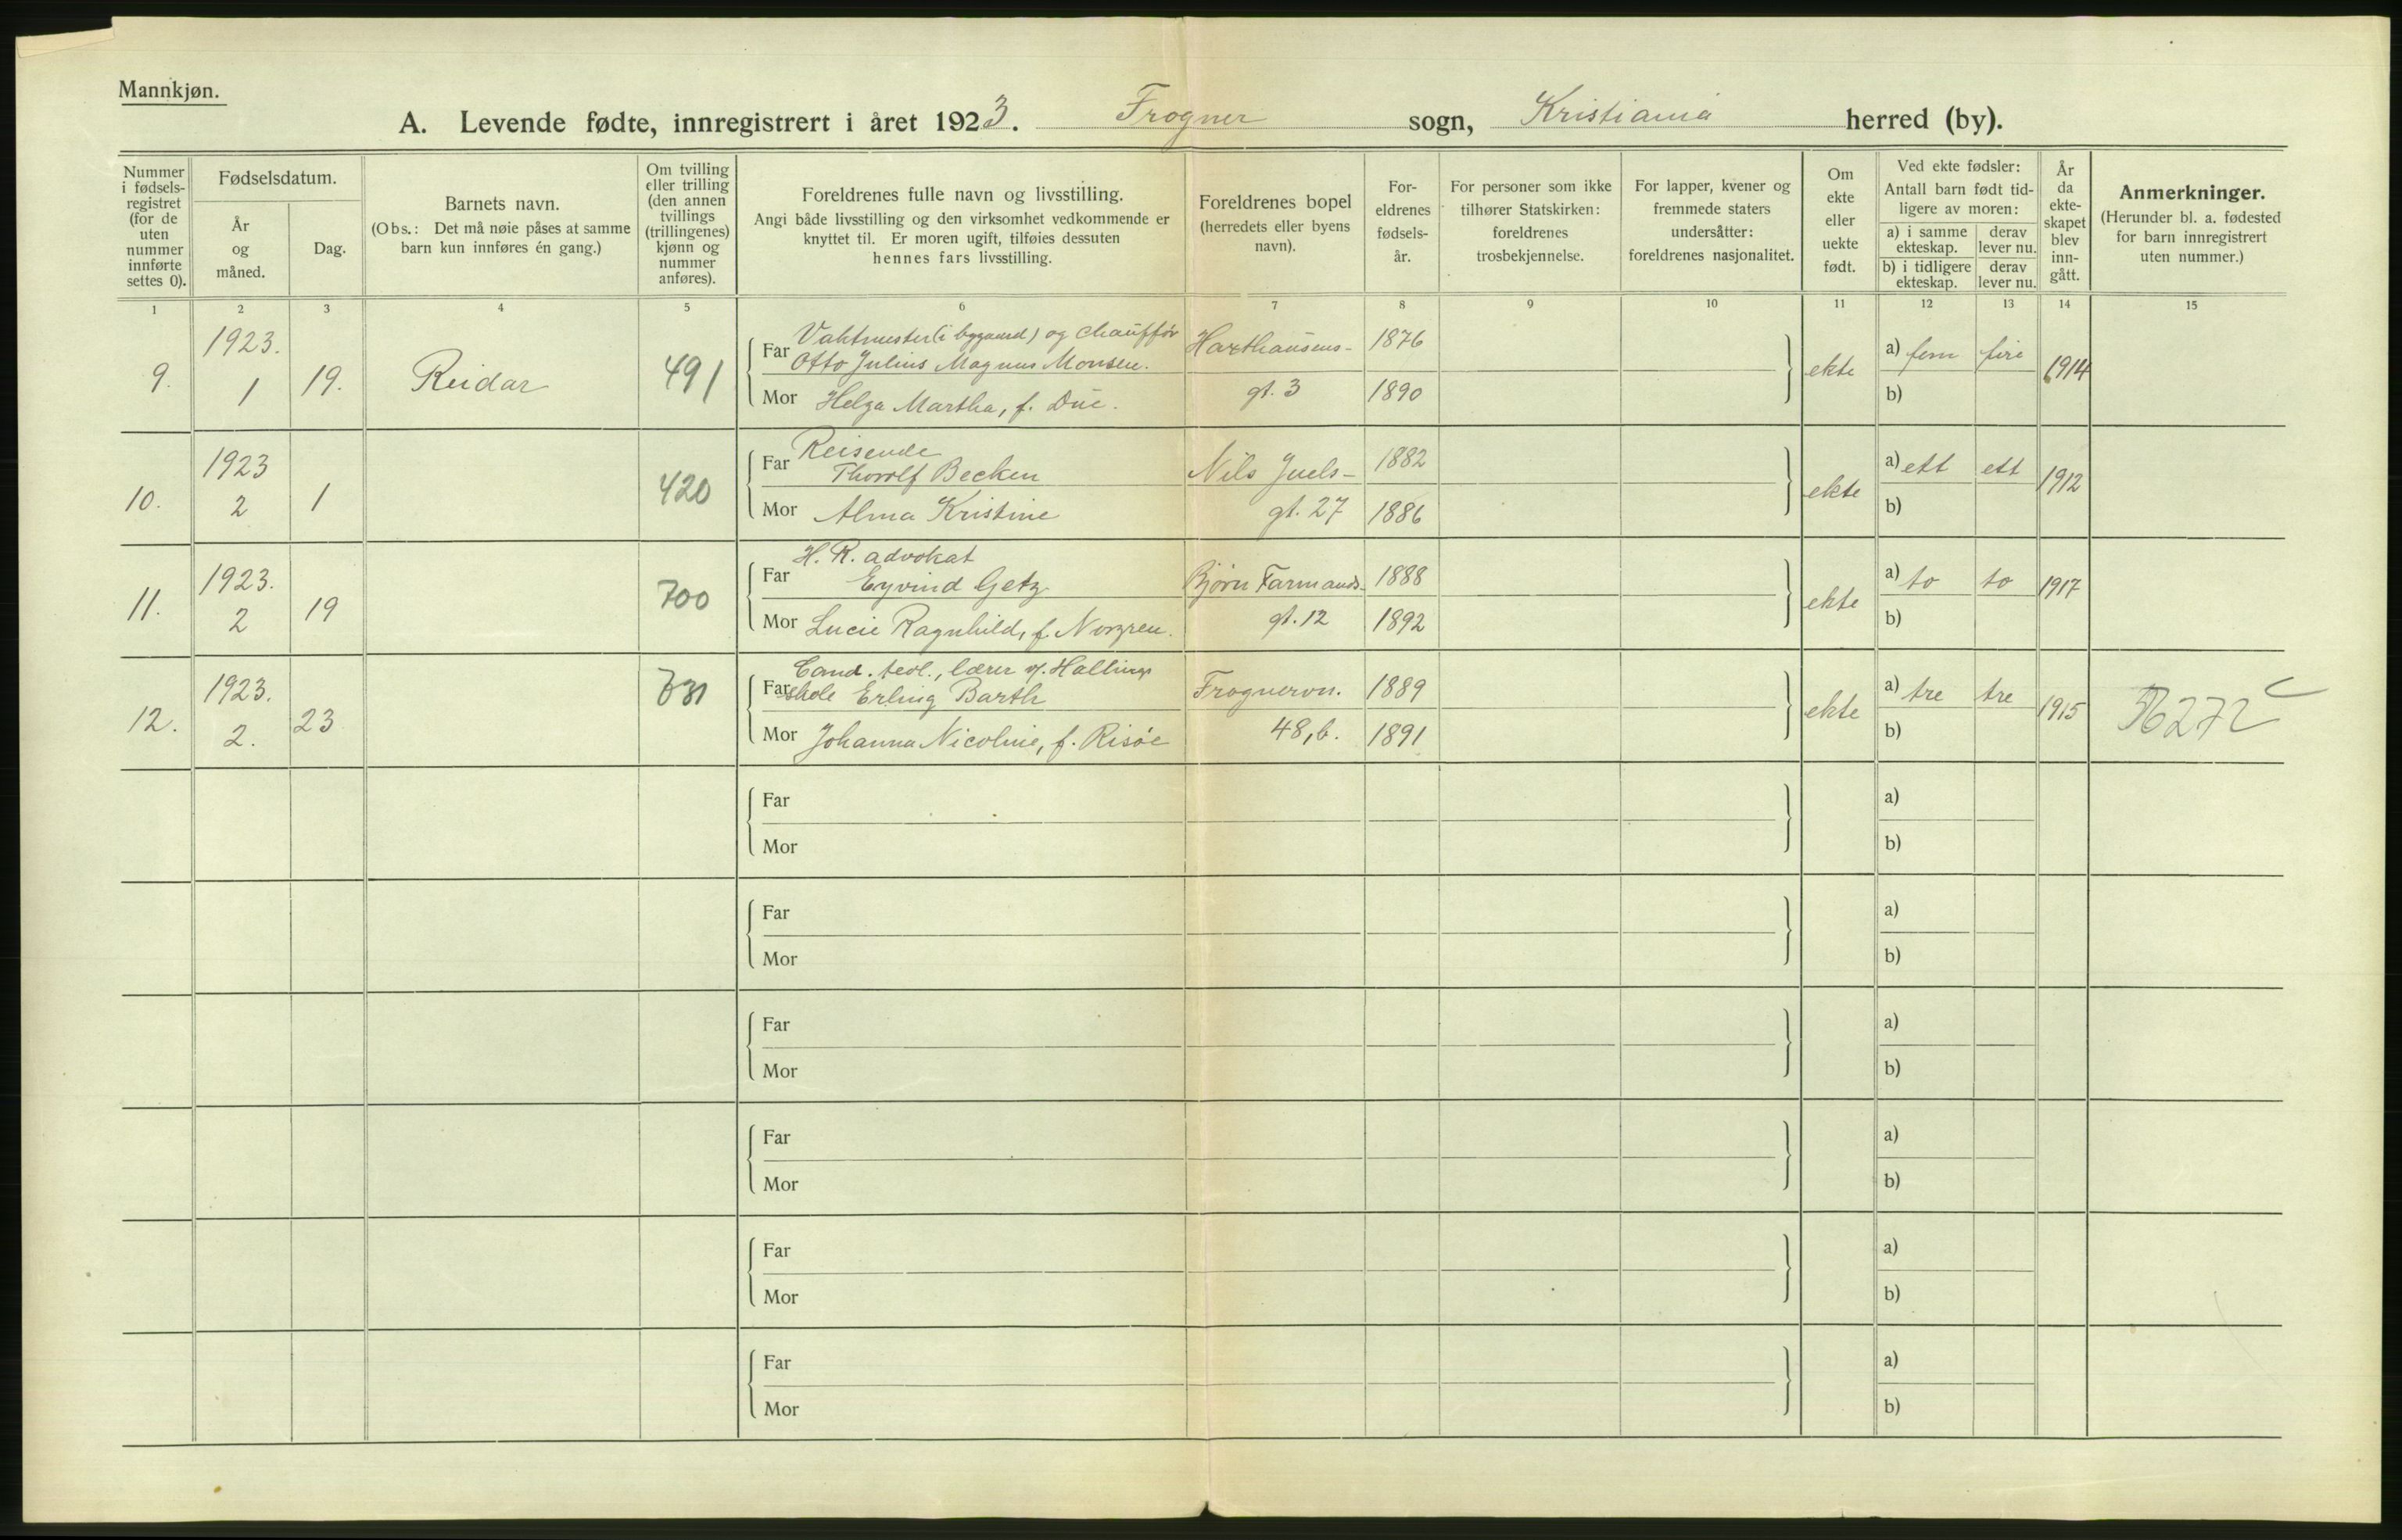 Mannkjøn.
A. Levende fødte, innregistrert i året 1923. Frogner sogn, Kristiania herred (by).
Nummer
i fødsels-
registret
(for de
uten
nummer
innførte
settes 0).
Fødselsdatum.
År
og
måned.
Dag.
Barnets navn.
(Obs.: Det må nøie påses at samme
barn kun innføres én gang.)
Om tvilling
eller trilling
(den annen
tvillings
(trillingenes)
kjønn og
nummer
anføres).
Foreldrenes fulle navn og livsstilling.
Angi både livsstilling og den virksomhet vedkommende er
knyttet til. Er moren ugift, tilføies dessuten
hennes fars livsstilling.
Foreldrenes bopel
(herredets eller byens
navn).
For-
eldrenes
fødsels-
år.
For personer som ikke
tilhører Statskirken:
foreldrenes
trosbekjennelse.
For lapper, kvener og
fremmede staters
undersåtter:
foreldrenes nasjonalitet.
Om
ekte
eller
uekte
født.
Ved ekte fødsler:
Antall barn født tid-
ligere av moren:
a) i samme
ekteskap.
derav
lever nu.
b) i tidligere
ekteskap.
derav
lever nu.
År
da
ekte-
skapet
blev
inn-
gått.
Anmerkninger.
(Herunder bl. a. fødested
for barn innregistrert
uten nummer.)
1 2 3 4 5 6 7 8 9 10 11 12 13 14 15
9. 1923. 1 19. Reidar 491
Vaktmester (i bygaard) og chauffør
Far Otto Julius Magnus Monsen. Harthausens- 1876
Mor Helga Martha, f. Due. gt. 3 1890
ekte a) fem fire 1914
b)
10. 1923 2 1 420
Reisende
Far Thorolf Becken Nils Juels- 1882
Mor Alma Kristine gt. 27 1886
ekte a) ett ett 1912
b)
11. 1923. 2 19 700
H. R. advokat
Far Eyvind Getz Bjørn Farmands- 1888
Mor Lucie Ragnhild, f. Norgren. gt. 12 1892
ekte a) to to 1917
b)
12. 1923. 2. 23 731
Cand. teol., lærer v/. Hallings
Far skole Erling Barth Frognervn. 1889
Mor Johanna Nicoline, f. Risöe 48, b. 1891
ekte a) tre tre 1915
b)
Far a)
Mor b)
Far a)
Mor b)
Far a)
Mor b)
Far a)
Mor b)
Far a)
Mor b)
Far a)
Mor b)